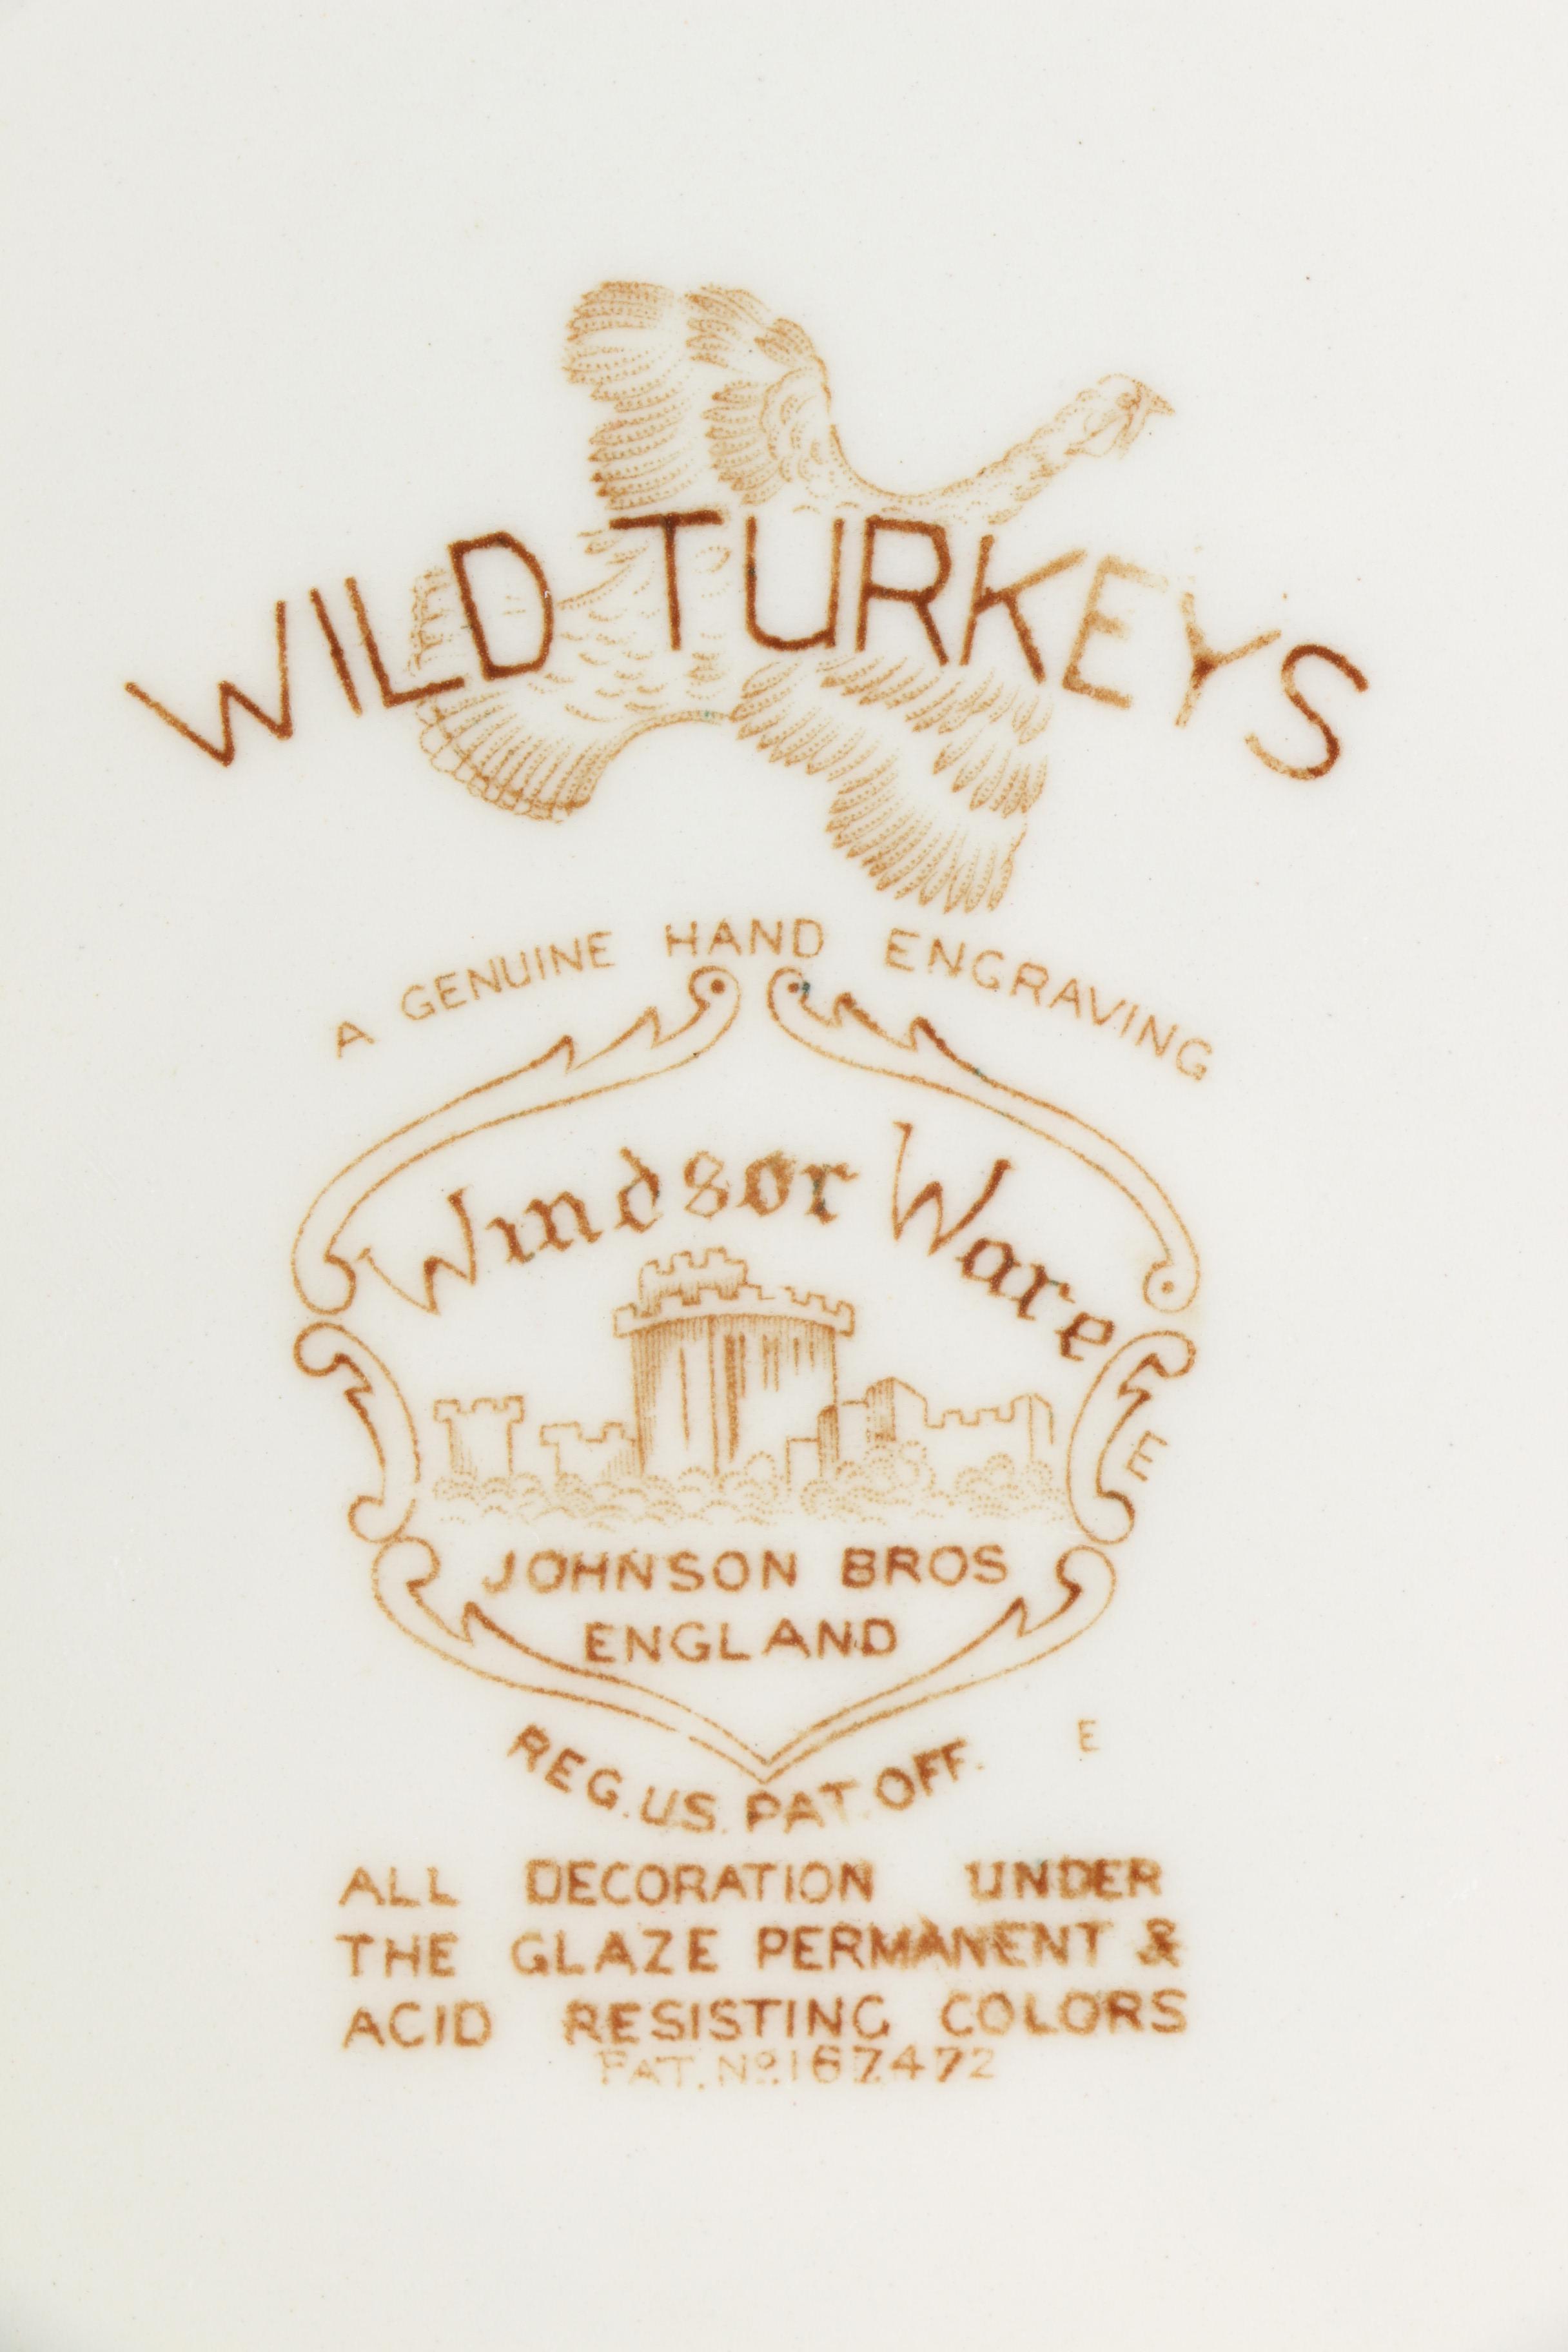 WILD TURKEYS
A GENUINE HAND ENGRAVING
Windsor Ware
E
JOHNSON BROS
ENGLAND
REG. U.S. PAT. OFF.
E
ALL DECORATION UNDER
THE GLAZE PERMANENT &
ACID RESISTING COLORS
PAT. Nº 167472